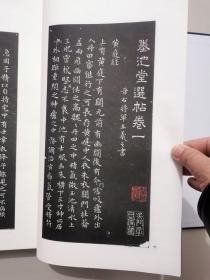 墨池堂選帖卷一
晉右將軍王羲之書
黃庭經
上有黃庭下有關元前有幽闕後有命門噓吸廬外出
入丹田審能行之可長存黃庭中人衣朱衣關門壯籥
蓋兩扉幽闕俠之高巍巍丹田之中精氣微玉池清水上
生肥靈根堅志不衰中池有士服赤朱橫下三寸神所居
中外相距重閉之神廬之中務脩治玄癰氣管受精符
急固子精以自持宅中有士常衣絳子能見之可不病